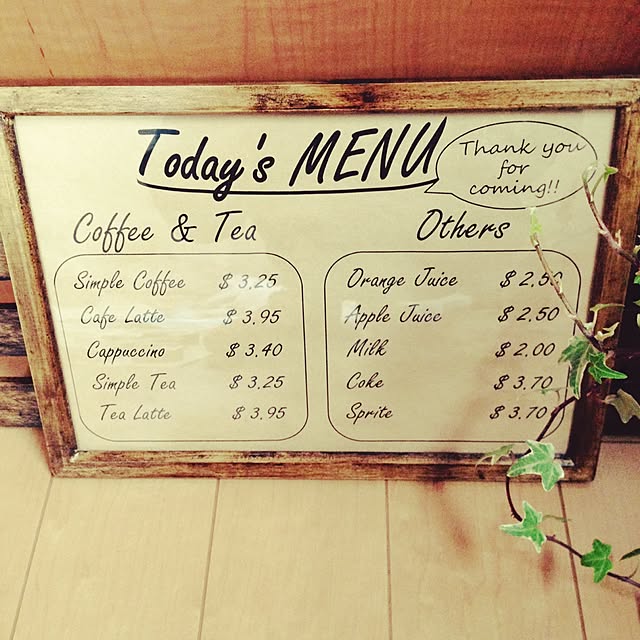 Today's MENU
Thank you
for
coming!!
Coffee & Tea
Simple Coffee $ 3.25
Cafe Latte $ 3.95
Cappuccino $ 3.40
Simple Tea $ 3.25
Tea Latte $ 3.95
Others
Orange Juice $ 2.50
Apple Juice $ 2.50
Milk $ 2.00
Coke $ 3.70
Sprite $ 3.70